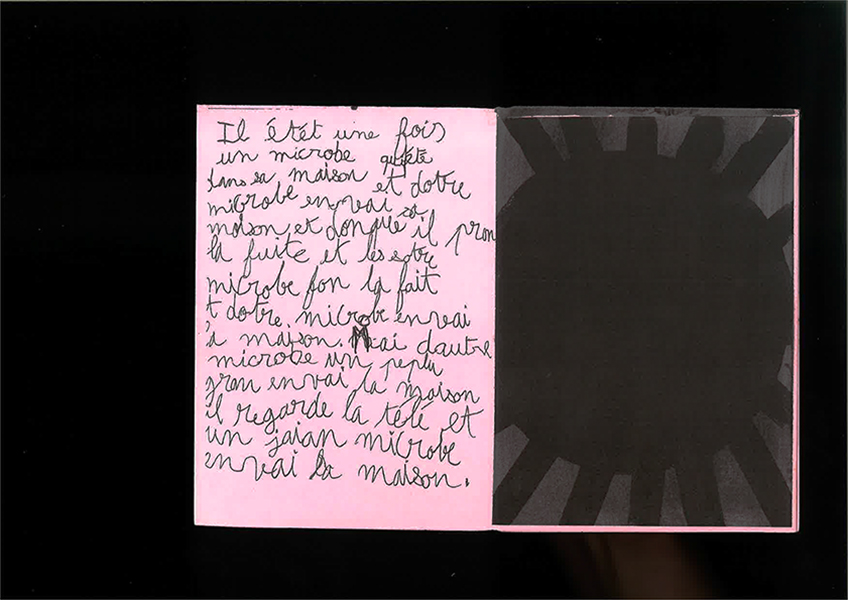 Il étét une fois
un microbe quiété
dans sa maison et dotre
microbe envai sa
maison, et donque il pron
la fuite et les sotre
microbe fon la fait
t dotre microbe envai
a maison. Mai dautre
microbe un peplu
gran envai la maison
il regarde la télé et
un jaian microbe
envai la maison.